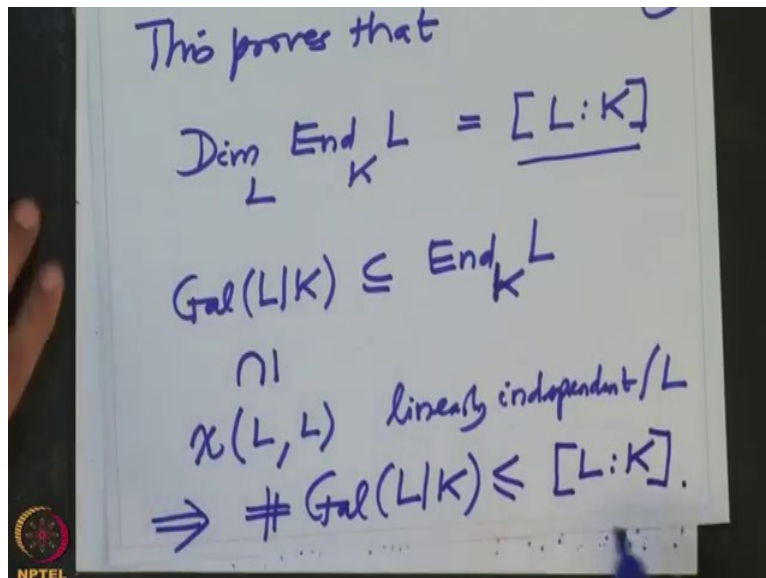 This proves that
Dim_L End_K L = [L:K]
Gal(L|K) ⊆ End_K L
∩|
χ(L, L) linearly independent/L
⇒ # Gal(L|K) ≤ [L:K].
NPTEL